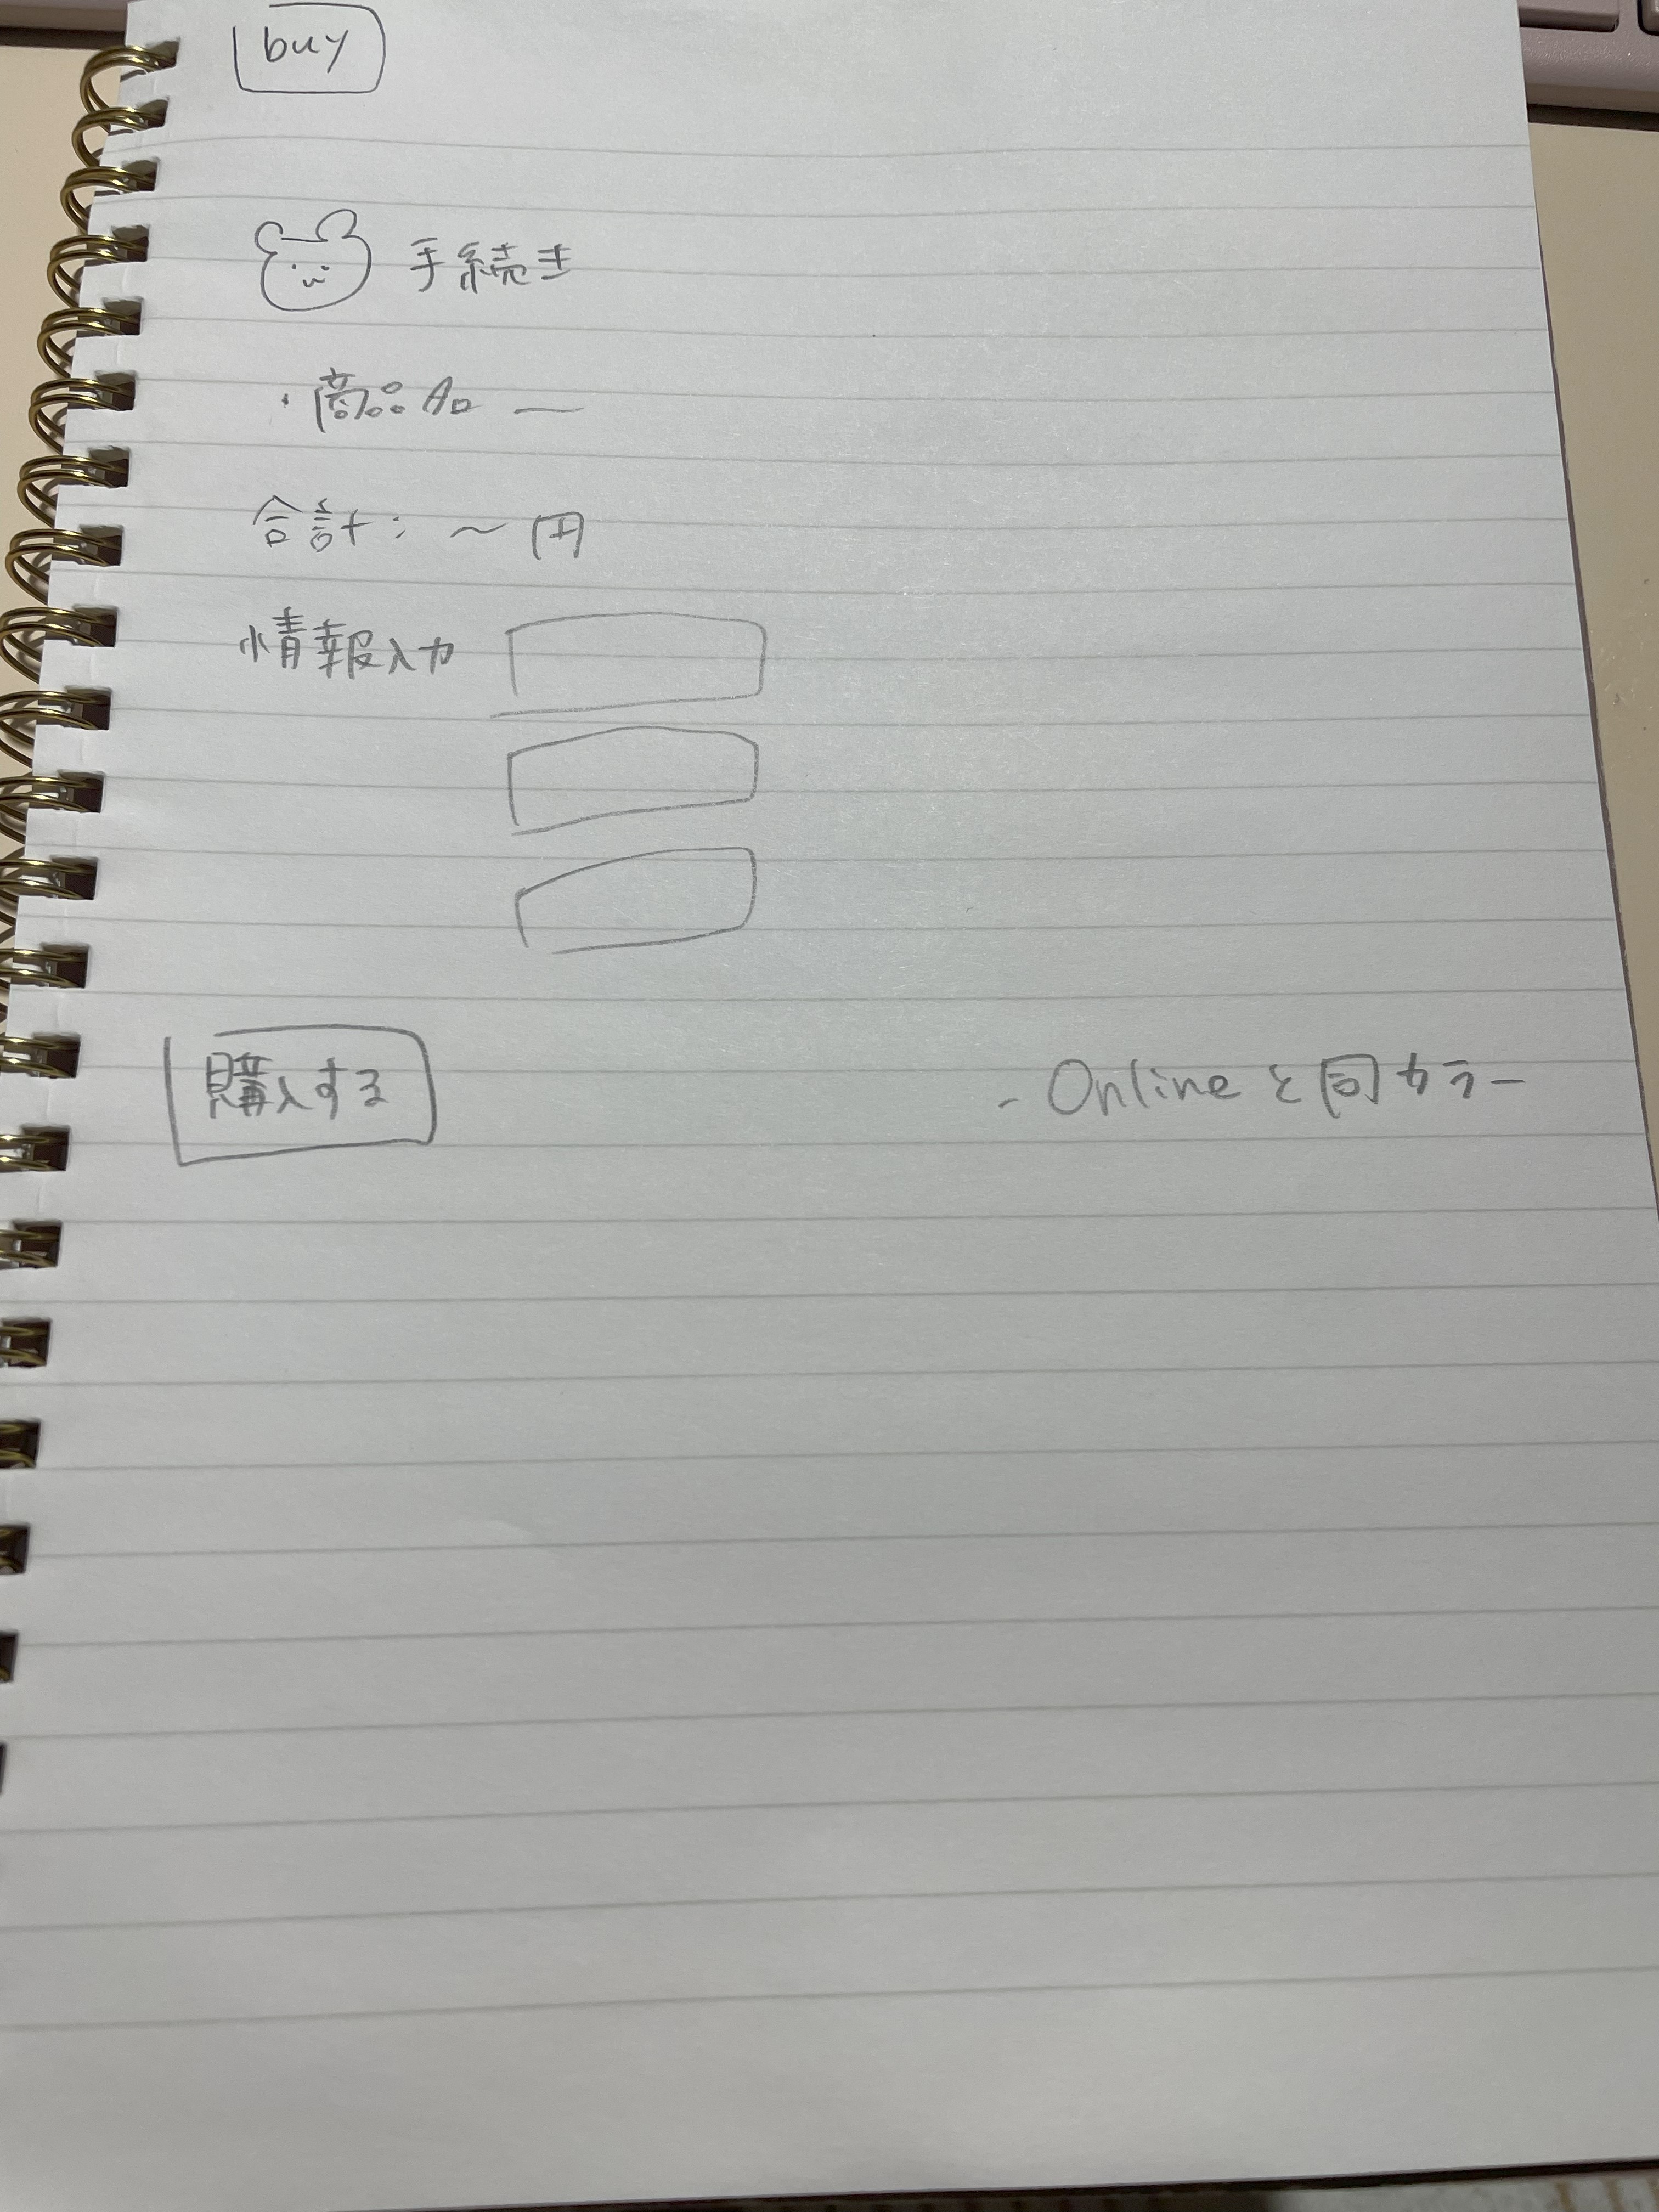 buy
手続き
・商品名 —
合計: 〜円
情報入力
購入する
- Onlineと同カラー